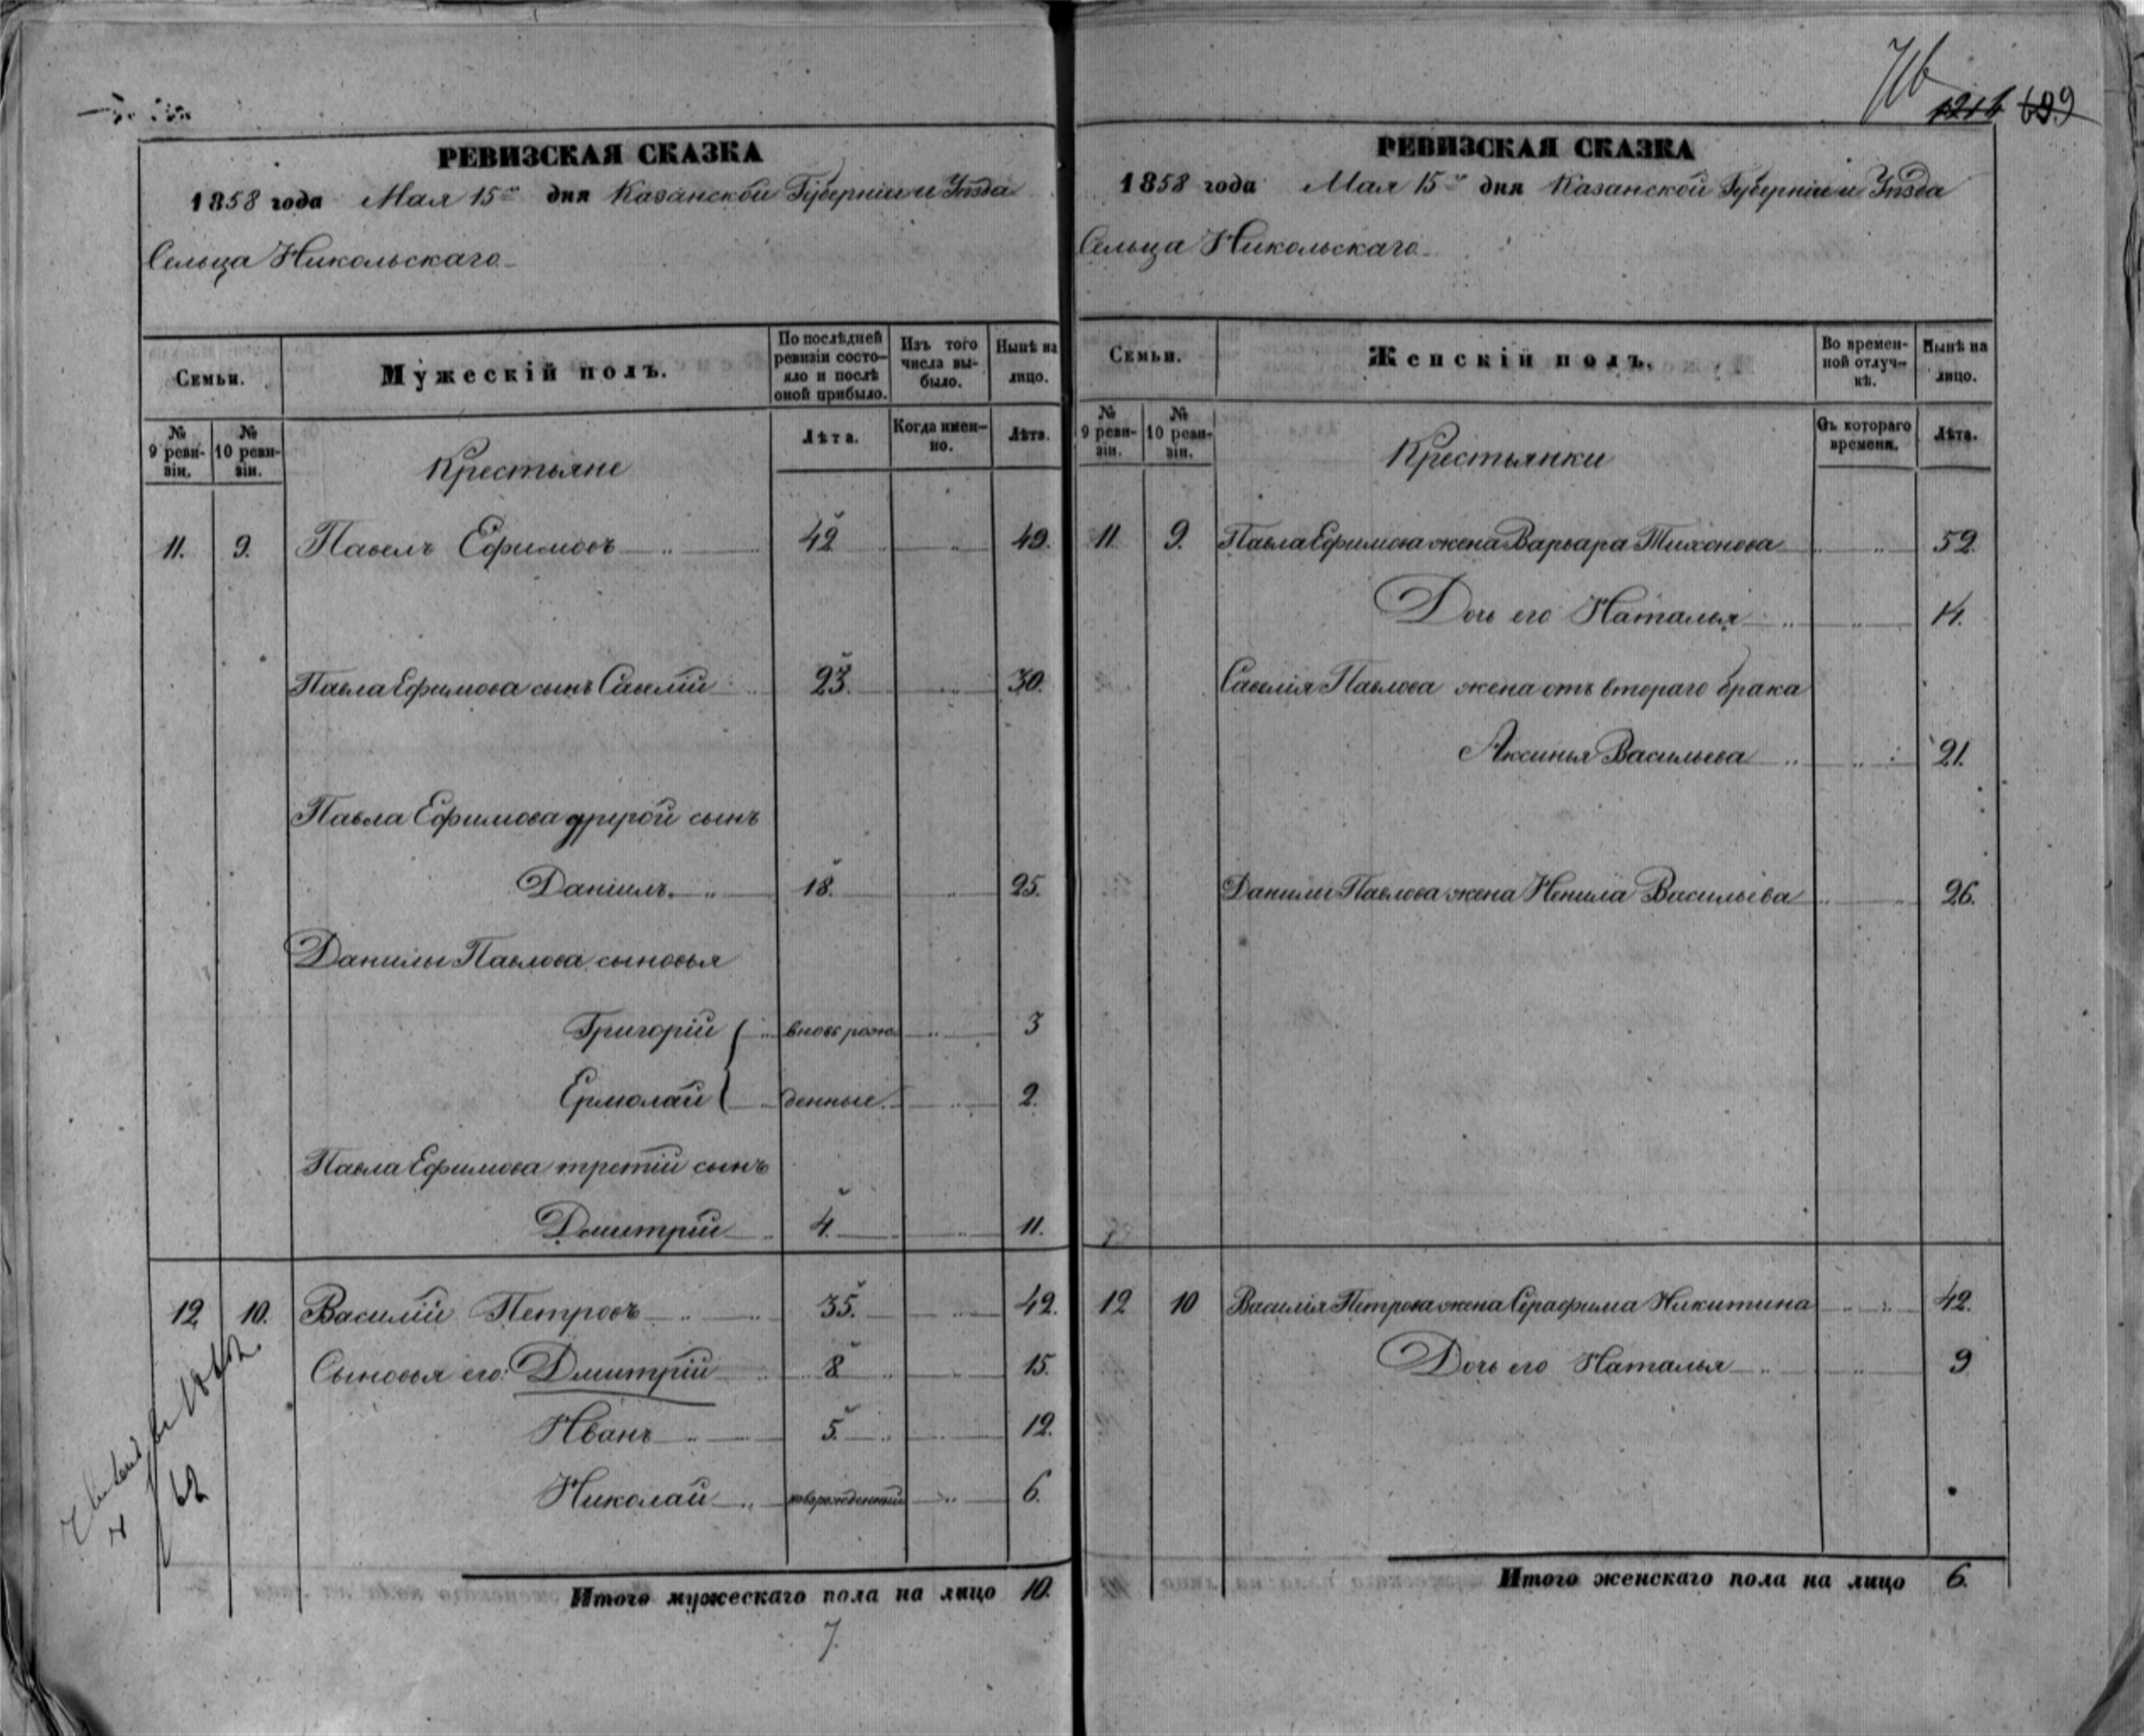 РЕВИЗСКАЯ СКАЗКА
1858 года Мая 15го дня Казанской Губерніи и Уѣзда
Сельца Никольскаго
Семьи.
Мужескій полъ.
По послѣдней ревизіи состояло и послѣ оной прибыло.
Изъ того числа выбыло.
Нынѣ на лицо.
№ 9 ревизіи.
№ 10 ревизіи.
Крестьяне
Лѣта.
Когда именно.
Лѣта.
11. 9. Павелъ Ефимовъ 42 49.
Павла Ефимова сынъ Савелій 23. 30.
Павла Ефимова другой сынъ
Даніилъ 18. 25.
Данилы Павлова сыновья
Григорій вновь рож 3
Ермолай денные 2.
Павла Ефимова третій сынъ
Дмитрій 4. 11.
12 10. Василій Петровъ 35. 42.
Сыновья его: Дмитрій 8 15.
Иванъ 5. 12.
Николай новорожденный 6.
Итого мужескаго пола на лицо 10.
7.
1214 699
РЕВИЗСКАЯ СКАЗКА
1858 года Мая 15го дня Казанской Губерніи и Уѣзда
Сельца Никольскаго
Семьи.
Женскій полъ.
Во временной отлучкѣ.
Нынѣ на лицо.
№ 9 ревизіи.
№ 10 ревизіи.
Крестьянки
Съ котораго времени.
Лѣта.
11. 9. Павла Ефимова жена Варвара Тихонова 52.
Дочь его Наталья 14.
Савелія Павлова жена отъ втораго брака
Аксинья Васильева 21.
Данилы Павлова жена Ненила Васильева 26.
12 10 Василія Петрова жена Серафима Никитина 42.
Дочь его Наталья 9
Итого женскаго пола на лицо 6.